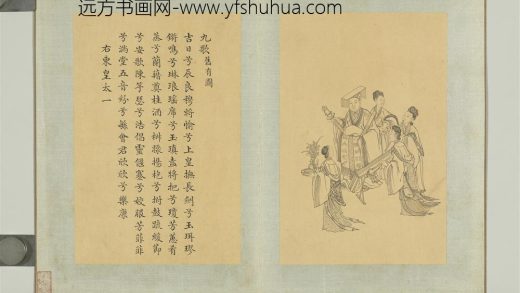 远方书画网-www.yfshuhua.com
九歌舊有圖
吉日兮辰良穆將愉兮上皇撫長劍兮玉珥璆
鏘鳴兮琳琅瑤席兮玉瑱盍將把兮瓊芳蕙肴
蒸兮蘭藉奠桂酒兮椒漿揚枹兮拊鼓疏緩節
兮安歌陳竽瑟兮浩倡靈偃蹇兮姣服芳菲菲
兮滿堂五音紛兮繁會君欣欣兮樂康
右東皇太一